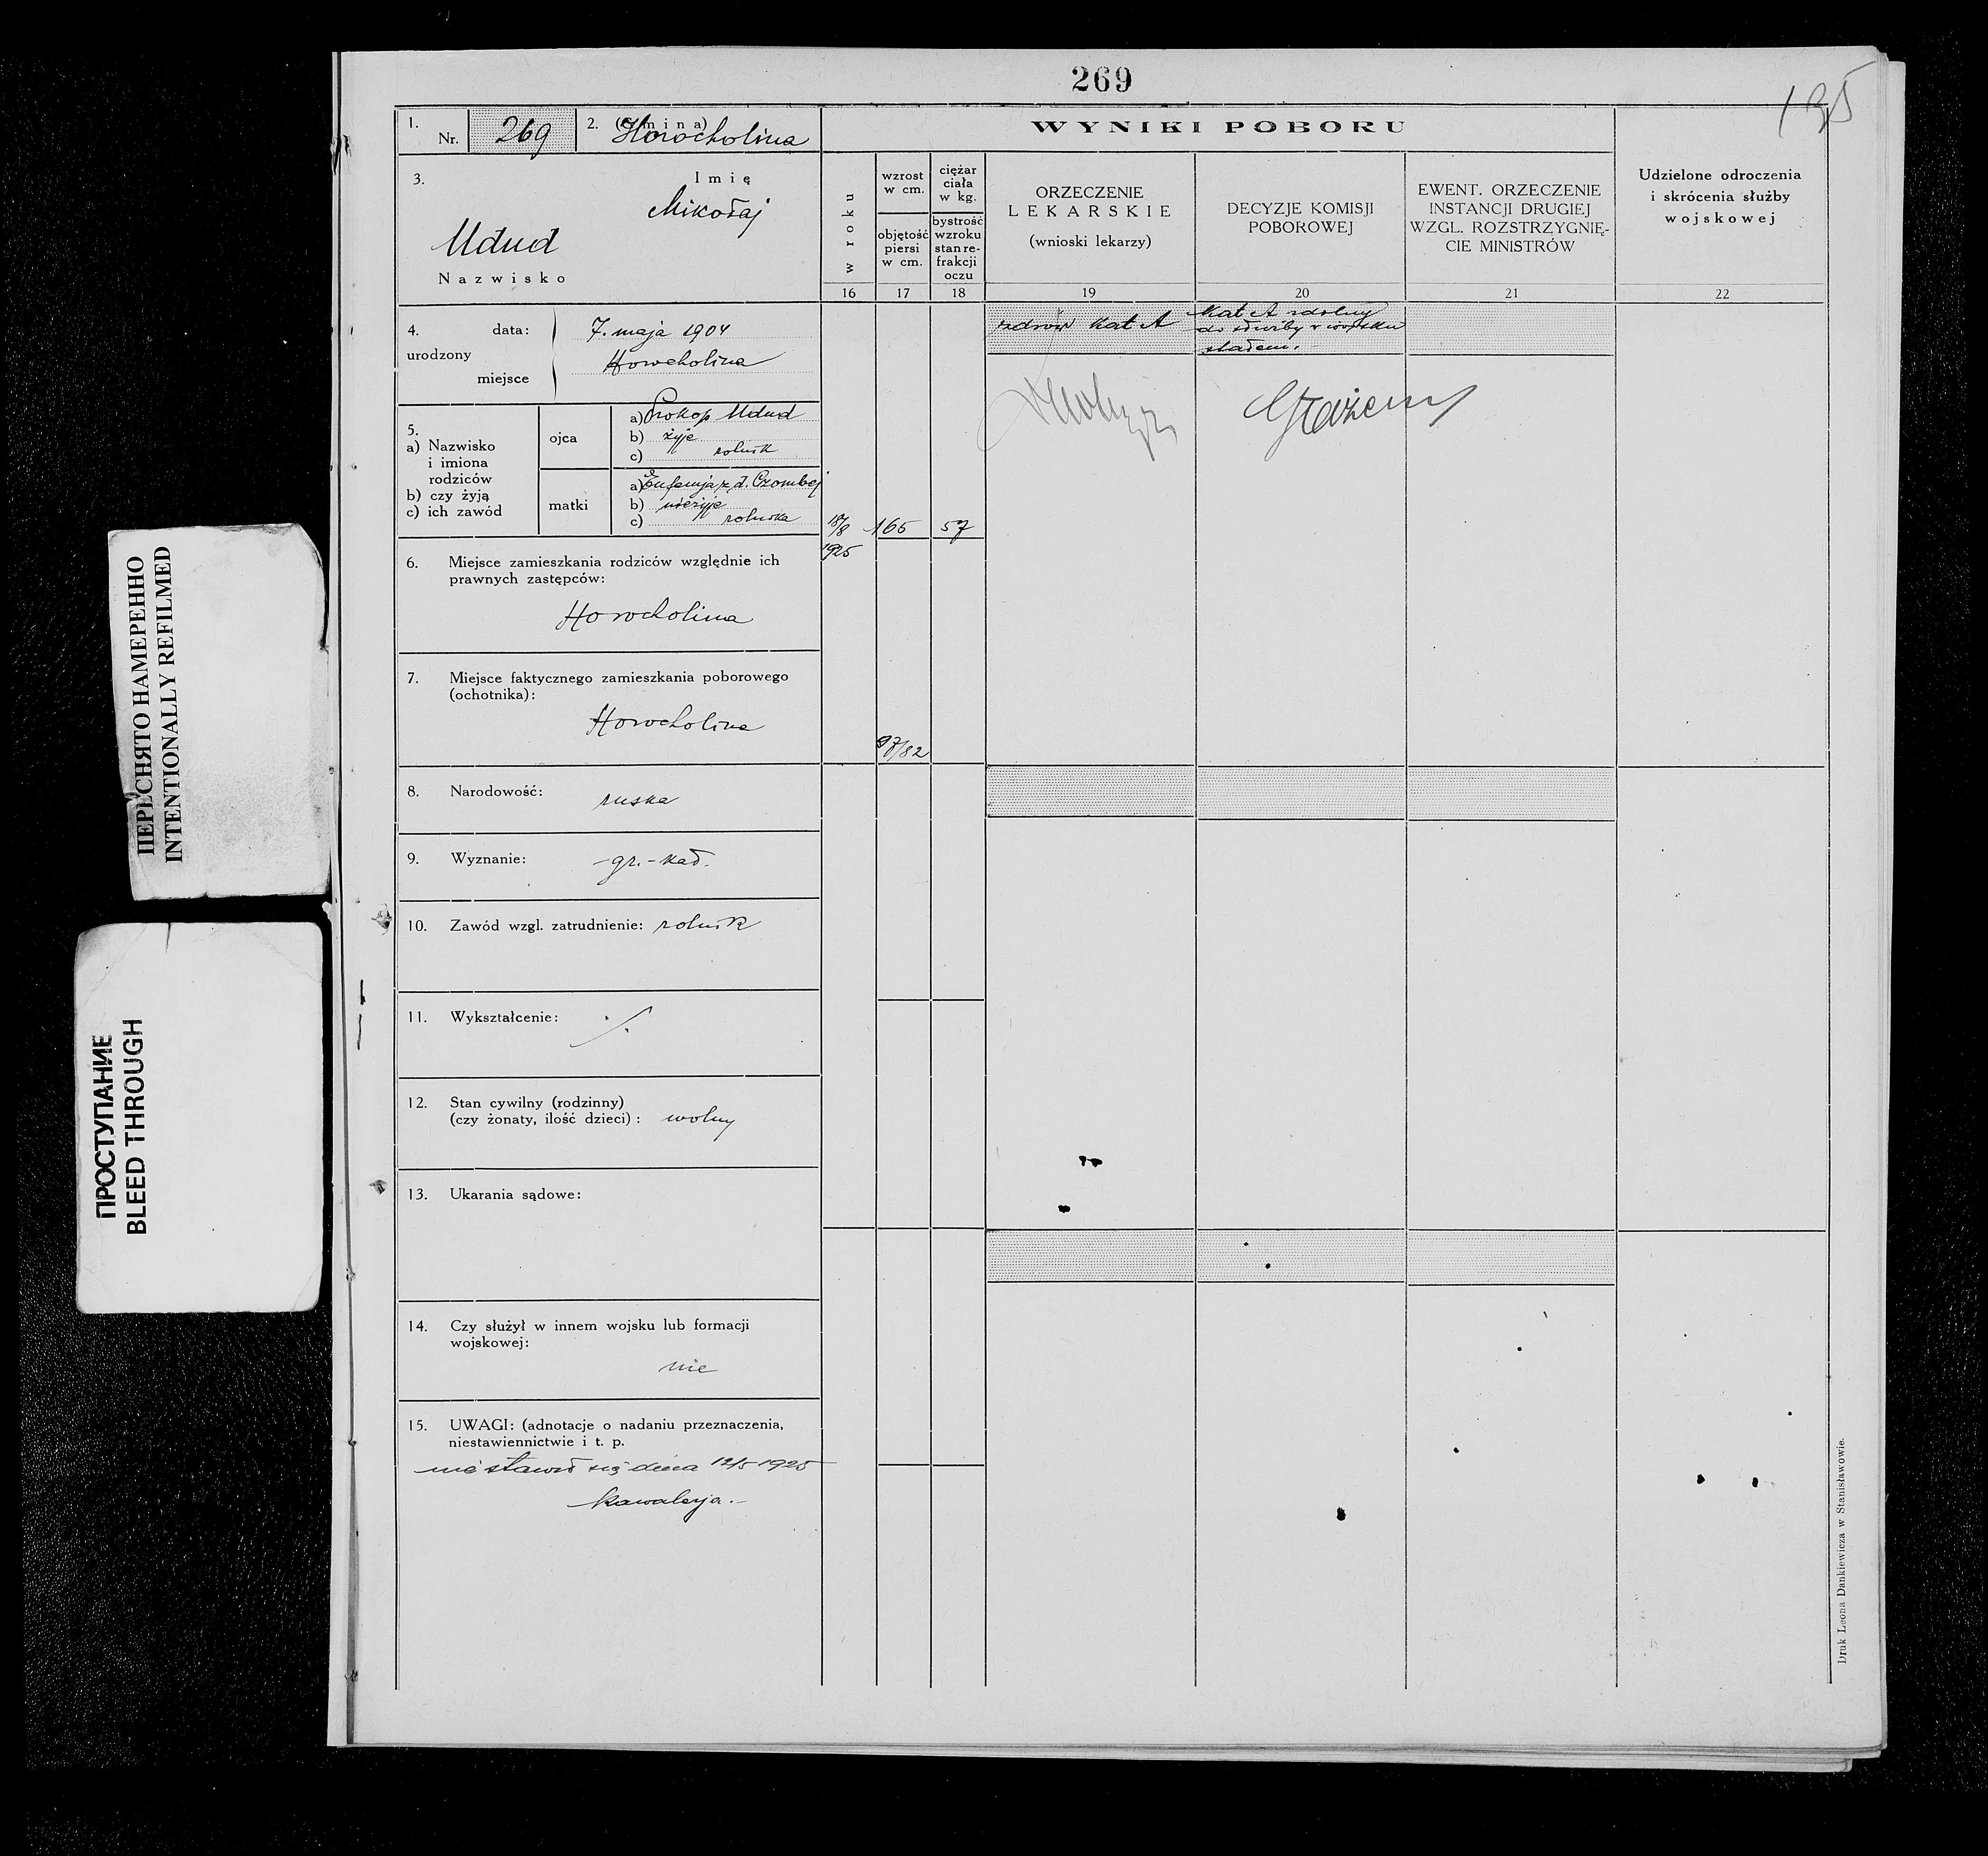 269
195
1.
Nr. 269
2. (Gmina)
Horocholina
3.
Imię
Mikołaj
Mdud
Nazwisko
WYNIKI POBORU
w roku
wzrost
w cm.
objętość
piersi
w cm.
ciężar
ciała
w kg.
bystrość
wzroku
stan re-
frakcji
oczu
ORZECZENIE
LEKARSKIE
(wnioski lekarzy)
DECYZJE KOMISJI
POBOROWEJ
EWENT. ORZECZENIE
INSTANCJI DRUGIEJ
WZGL. ROZSTRZYGNIĘ-
CIE MINISTRÓW
Udzielone odroczenia
i skrócenia służby
wojskowej
16 17 18 19 20 21 22
4.
urodzony
data: 7. maja 1904
miejsce Horocholina
5.
a) Nazwisko
i imiona
rodziców
b) czy żyją
c) ich zawód
ojca
a) Prokop Mdud
b) żyje
c) rolnik
matki
a) Eufemja z d.
b) nieżyje
c) rolniczka
18/8
1925
165
57
97/82
zdrów Kat A
Kat A zdolny
do służby w wojsku
stałem.
6. Miejsce zamieszkania rodziców względnie ich
prawnych zastępców:
Horocholina
7. Miejsce faktycznego zamieszkania poborowego
(ochotnika):
Horocholina
8. Narodowość: ruska
9. Wyznanie: -gr.-kat.
10. Zawód wzgl. zatrudnienie: rolnik
11. Wykształcenie: ./.
12. Stan cywilny (rodzinny)
(czy żonaty, ilość dzieci): wolny
13. Ukarania sądowe:
14. Czy służył w innem wojsku lub formacji
wojskowej:
nie
15. UWAGI: (adnotacje o nadaniu przeznaczenia,
niestawiennictwie i t. p.
nie stawił się dnia 12/5 1925
Kawalerja.-
Druk Leona Dankiewicza w Stanisławowie.
ПЕРЕСНЯТО НАМЕРЕННО
INTENTIONALLY REFILMED
ПРОСТУПАНИЕ
BLEED THROUGH